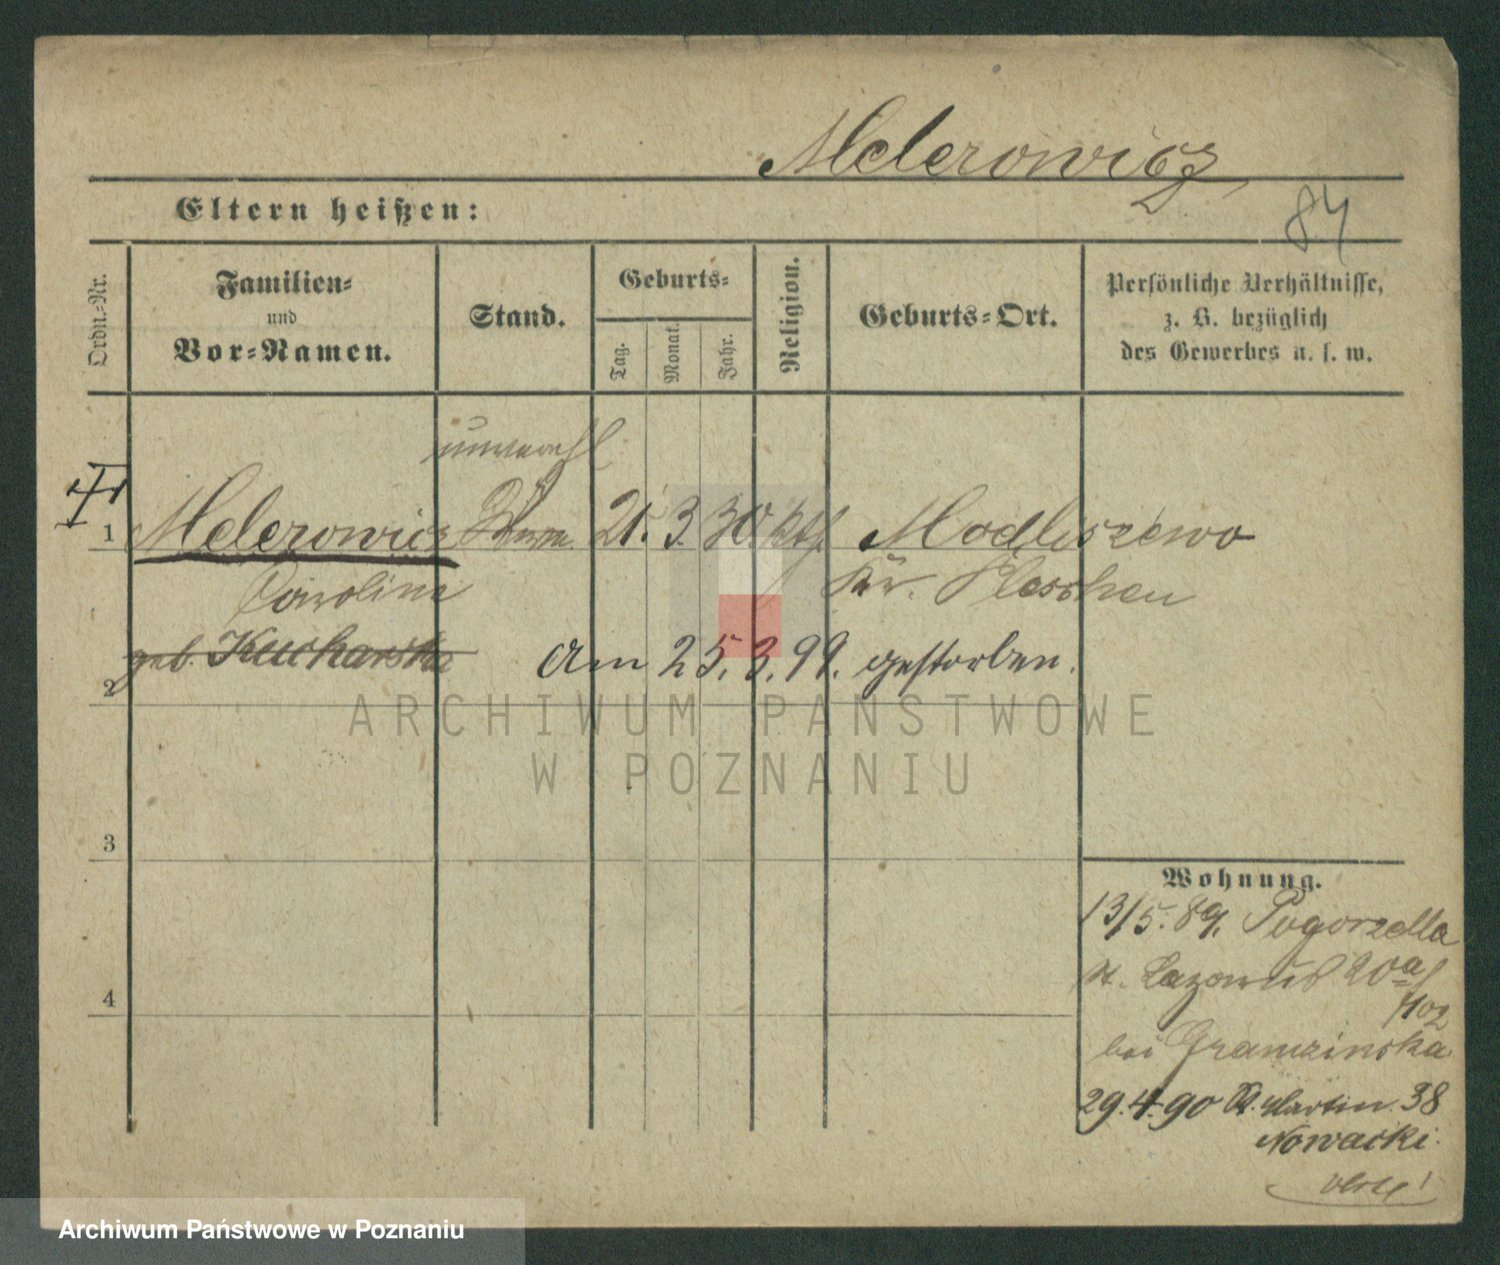 Melerowicz
84
Eltern heißen:
Ordn.-Nr.
Familien-
und
Vor-Namen.
Stand.
Geburts-
Tag.
Monat.
Jahr.
Religion.
Geburts-Ort.
Persönliche Verhältnisse,
z. B. bezüglich
des Gewerbes u. s. w.
1 Melerowicz 21. 3. 30. kth. Modliszewo
Caroline Kr. Pleschen
geb. Kucharska am 25.3.99. gestorben.
2
ARCHIWUM PAŃSTWOWE
W POZNANIU
3
4
Wohnung.
13/5. 89. Pogorzella
St. Lazarus 20a
bei Gramzinska
29.4.90 St. Martin 38
Nowacki.
Archiwum Państwowe w Poznaniu